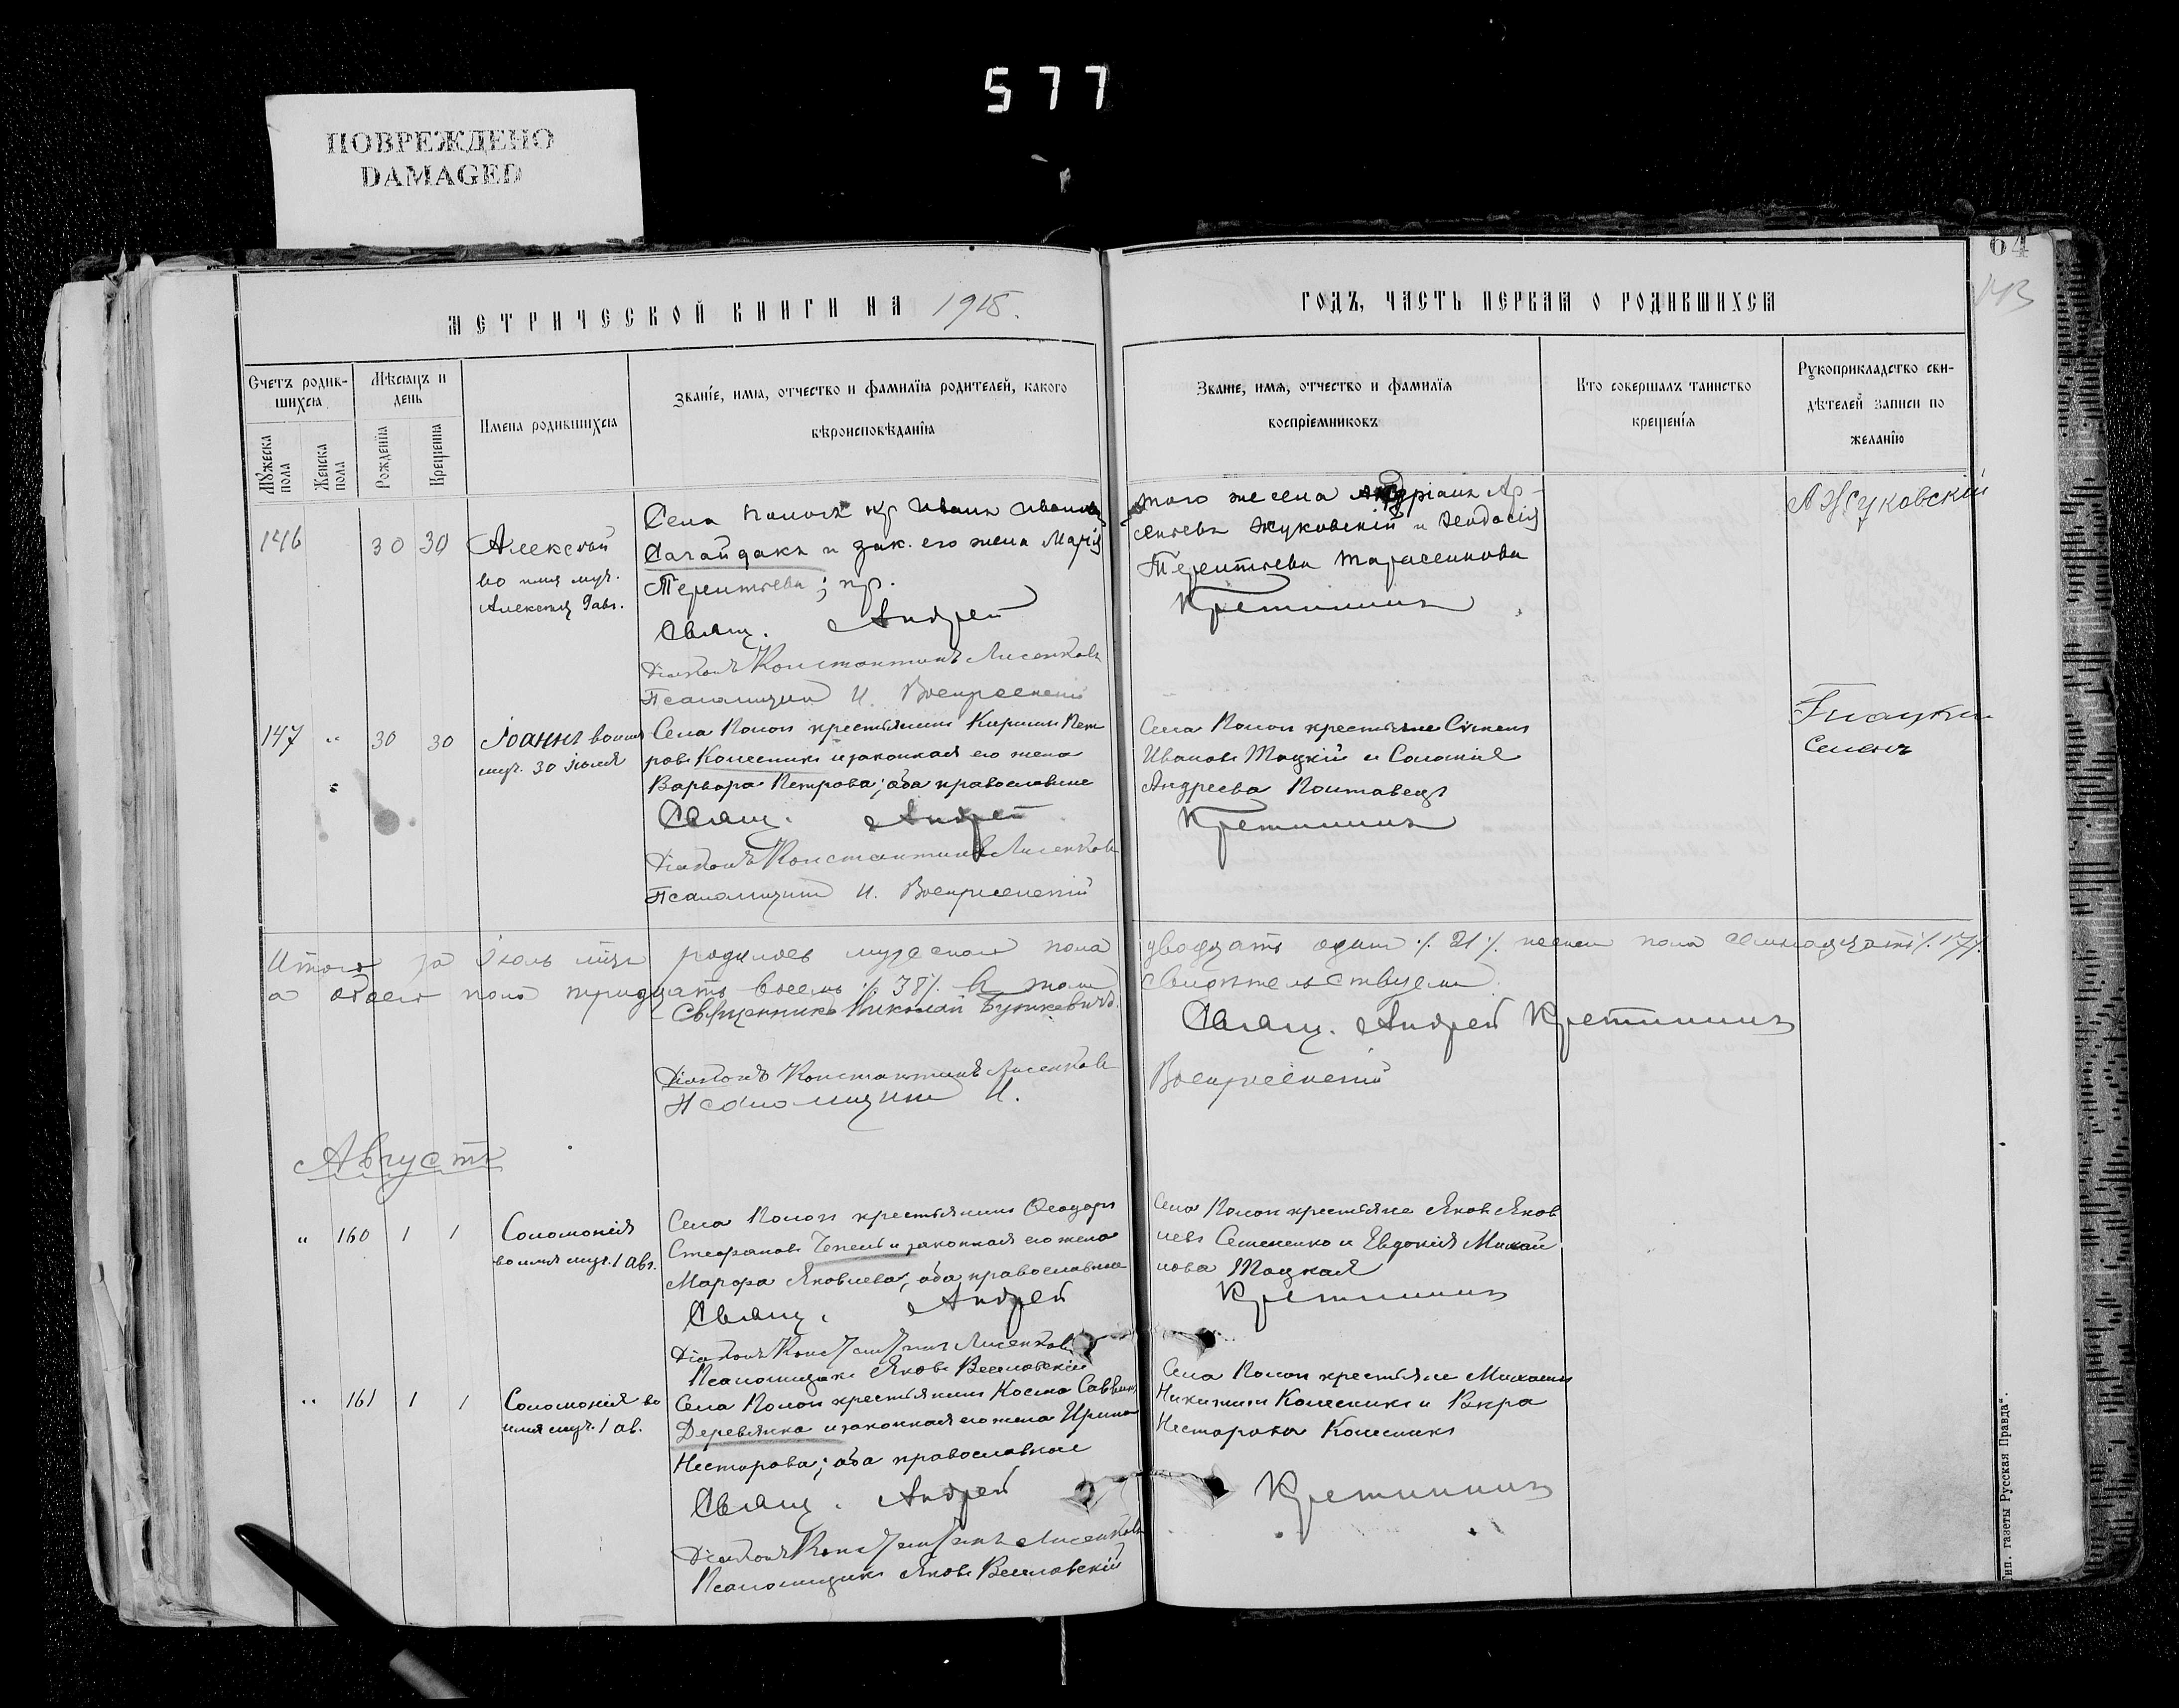 577
ПОВРЕЖДЕНО
DAMAGED
64
МЕТРИЧЕСКОЙ КНИГИ НА 1918.
ГОДЪ, ЧАСТЬ ПЕРВАЯ О РОДИВШИХСЯ
Счетъ родив-
шихся
Мѣсяцъ и
день
Мужеска
пола
Женска
пола
Рожденїя
Крещенія
Имена родившихся
Званїе, имя, отчество и фамилїя родителей, какого
вѣроисповѣданїя
Званїе, имя, отчество и фамилїя
воспрїемниковъ
Кто совершалъ таинство
крещенїя
Рукоприкладство сви-
дѣтелей записи по
желанїю
146 30 30
Алексѣй
во имя муч.
Алексія 9 авг.
Села кр Иванъ Ивановъ
Сагайдакъ и зак. его жена Марія
Терентьева; пр.
Свящ. Андрей
Діаконъ Константинъ Лисенковъ
Псаломщикъ И. Воскресенскій
того же села Ар-
сеньевъ Жуковскій и Феодосія
Терентьева Тарасенкова
Кретининъ
А Жуковскій
147 " 30 30
Іоаннъ во имя
муч. 30 іюля
Села крестьянинъ Кириллъ Пет
ровъ Колесникъ и законная его жена
Варвара Петрова; оба православные
Свящ. Андрей
Діаконъ Константинъ Лисенковъ
Псаломщикъ И. Воскресенскій
Села крестьяне
Ивановъ Тоцкій и
Андреева Полтавецъ
Кретининъ
Семенъ
Итого за Іюль мцъ родилось мужескаго пола двадцать одинъ ·/. 21 ·/. женска пола семнадцать ·/. 17 ·/.
а обоего пола тридцать восемь ·/. 38 ·/. В томъ свидѣтельствуемъ
Священникъ Николай Буткевичъ.
Свящ. Андрей Кретининъ
Діаконъ Константинъ Лисенковъ
Псаломщикъ И. Воскресенскій
Августъ
" 160 1 1
Соломонія
во имя муч. 1 авг.
Села крестьянинъ Ѳеодоръ
Стефановъ Чепель и законная его жена
Яковлева; оба православные
Свящ. Андрей
Діаконъ Константинъ Лисенковъ
Псаломщикъ Яковъ Веселовскій
Села крестьяне Яковъ Яков
левъ Семененко и Евдокія Михай
лова Тоцкая
Кретининъ
" 161 1 1
Соломонія во
имя муч. 1 ав.
Села крестьянинъ Косма Саввинъ
Деревянко и законная его жена Ирина
Несторова; оба православные
Свящ. Андрей
Діаконъ Константинъ Лисенковъ
Псаломщикъ Яковъ Веселовскій
Села крестьяне Михаилъ
Никитинъ Колесникъ и Вѣра
Несторова Колесникъ
Кретининъ
Тип. газеты Русская Правда".